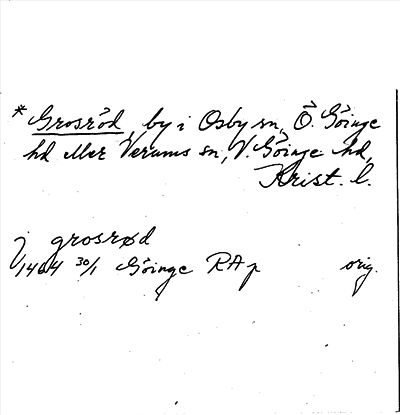 * Grosröd, by i Osby sn, Ö. Göinge
hd eller Verums sn, V. Göinge hd,
Krist. l.
j grosrød
1464 30/1 Göinge RA p orig.